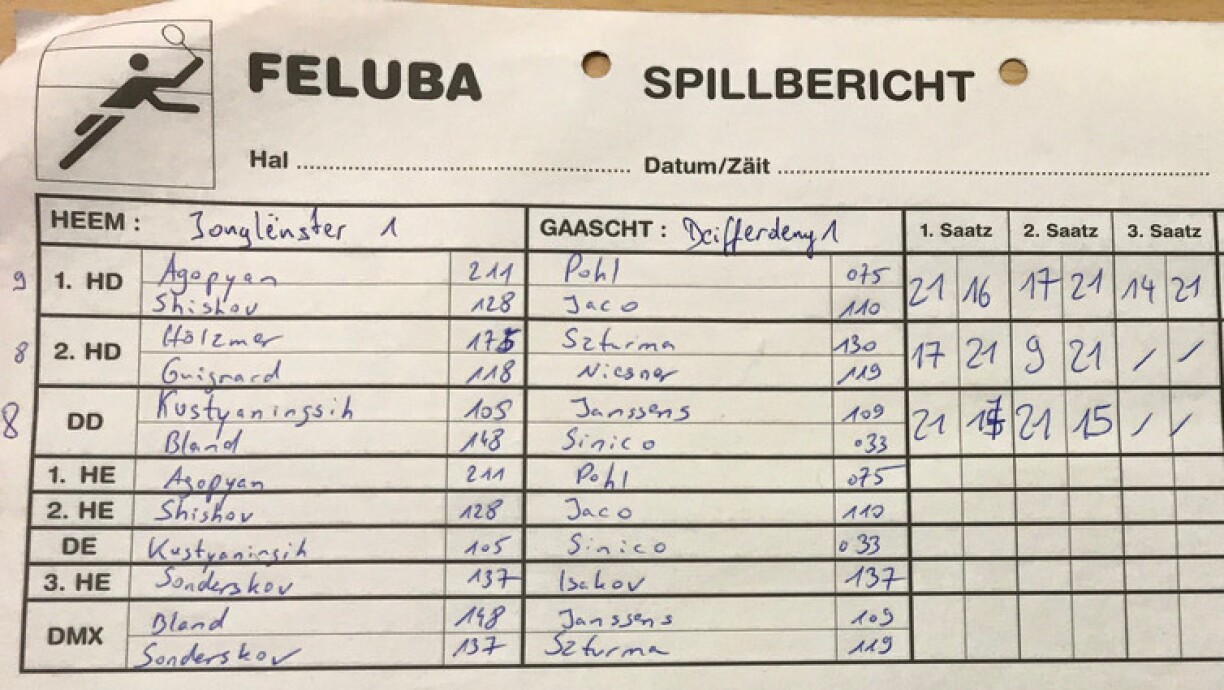 FELUBA SPILLBERICHT
Hal Datum/Zäit
HEEM : Jonglënster 1 GAASCHT : Deifferdeng 1 1. Saatz 2. Saatz 3. Saatz
9 1. HD Agopyan 211 Pohl 075 21 16 17 21 14 21
Shishov 128 Jaco 110
8 2. HD Hölzmer 175 Szturma 130 17 21 9 21 / /
Guignard 118 Niesner 119
8 DD Kustyaningsih 105 Janssens 109 21 21 15 / /
Bland 148 Sinico 033
1. HE Agopyan 211 Pohl 075
2. HE Shishov 128 Jaco 110
DE Kustyaningsih 105 Sinico 033
3. HE Sonderskov 137 Isakov 137
DMX Bland 148 Janssens 109
Sonderskov 137 Szturma 119